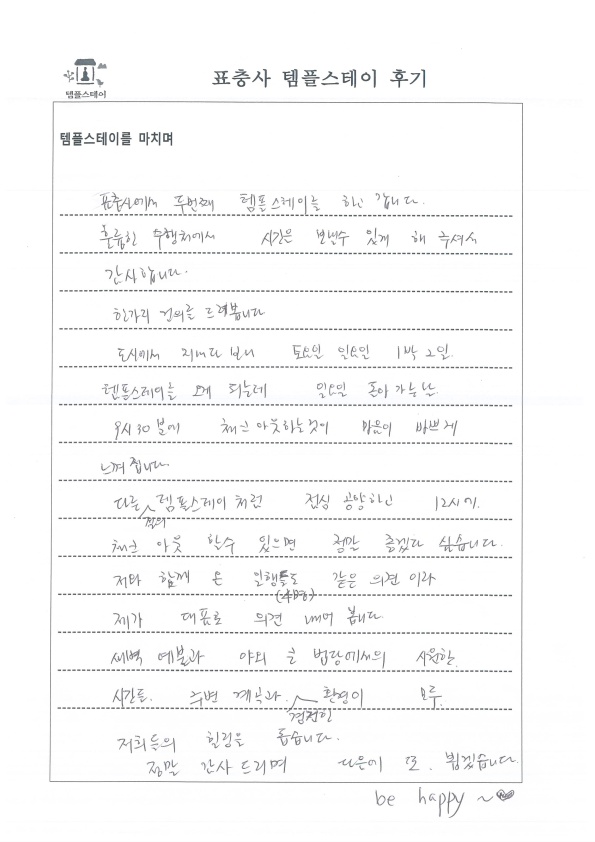 템플스테이
표충사 템플스테이 후기
템플스테이를 마치며
표충사에서 두번째 템플스테이를 하고 갑니다.
훌륭한 수행처에서 시간은 보낼수 있게 해 주셔서
감사합니다.
한가지 건의를 드려봅니다
도시에서 지내다 보니 토요일 일요일 1박 2일
템플스테이를 오게 되는데 일요일 돌아가는 날
9시 30분에 체크 아웃하는것이 마음이 바쁘게
느껴집니다.
다른 절의 템플스테이 처럼 점심 공양하고 12시에
체크 아웃 할수 있으면 정말 좋겠다 싶습니다.
저와 함께 온 일행들도 (4명) 같은 의견 이라
제가 대표로 의견 내어 봅니다.
새벽 예불과 야외 큰 법당에서의 시원한
시간들. 주변 계곡과 환경이 모두
저희들의 힐링을 돕습니다.
정말 감사 드리며 다음에 또. 뵙겠습니다.
be happy ~♥